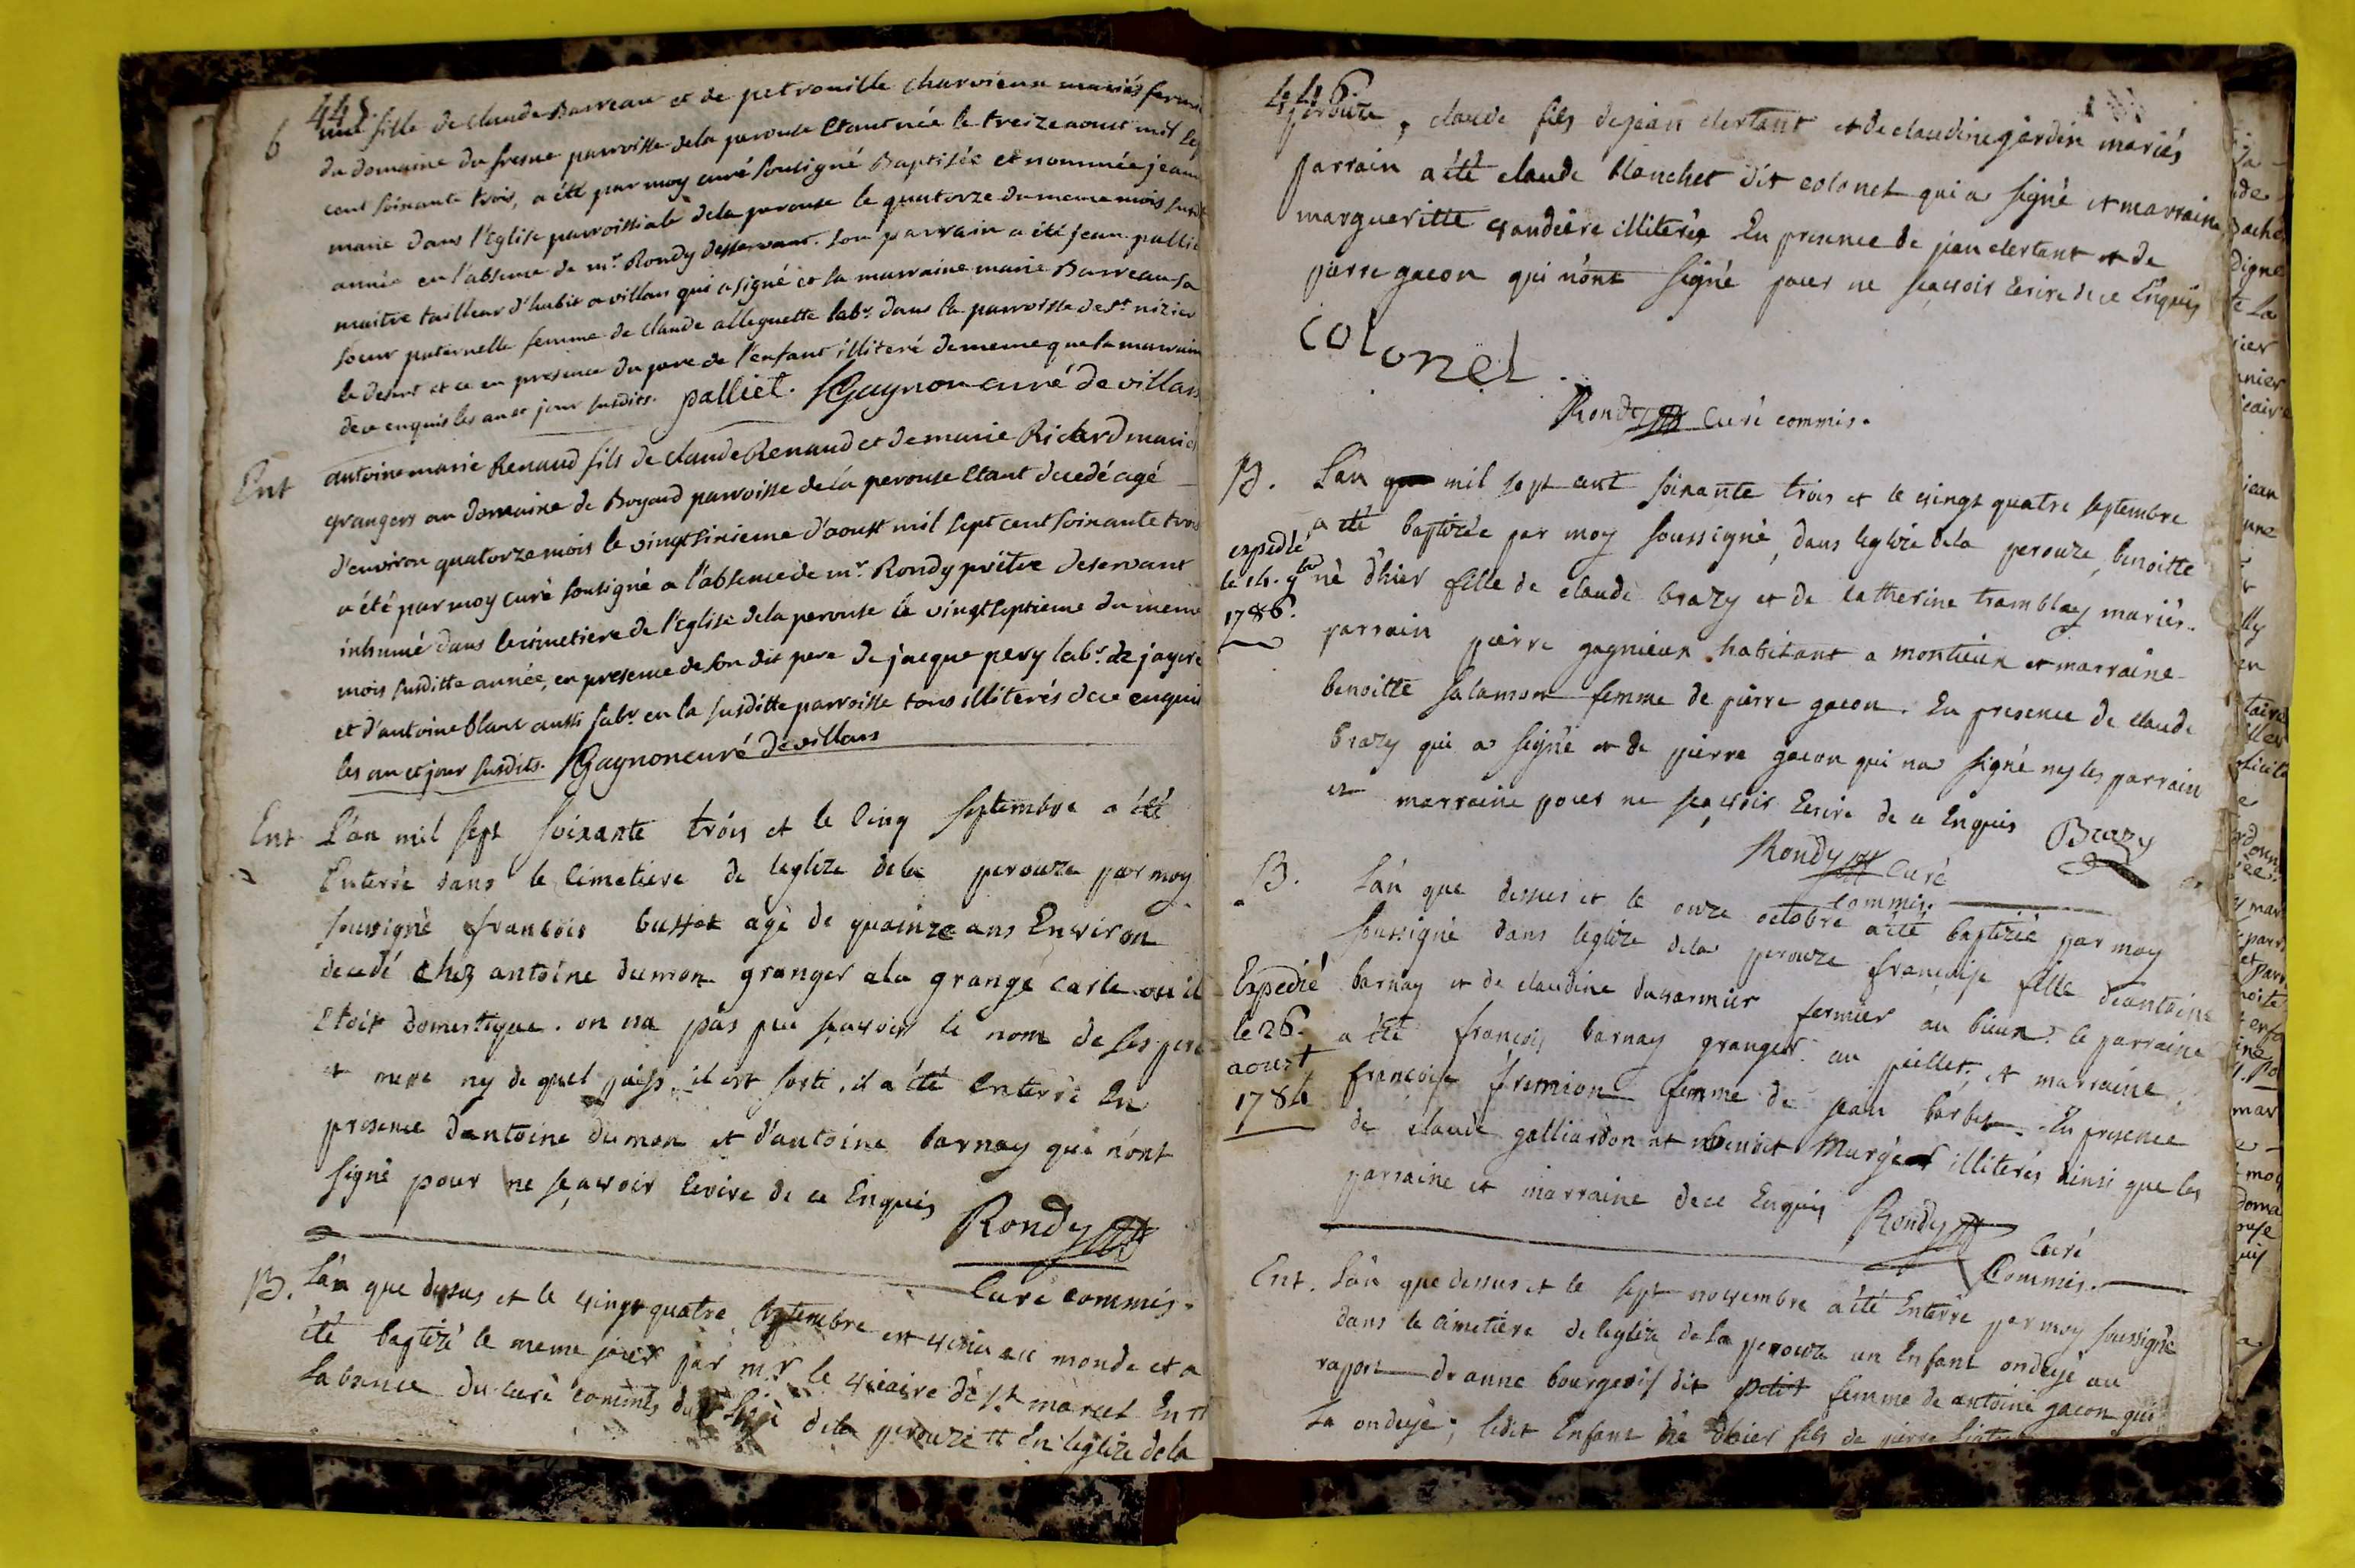 445
6 une fille de claude Barreau et de petronille charvieux mariés fermi
du domaine du fresne parroisse dela perouse Etant née le treize aoust mil sep
cent soixante trois, a été par moy curé sousigné Baptisée et nommée jeanne
marie dans l'Eglise parroissiale dela perouse le quatorze du meme mois susd
année en l'absence de mr. Rondy desservant. son parrain a été jean palliet
maitre tailleur d'habit a villars qui a signé et la marraine marie Barreau sa
soeur paternelle femme de claude alleguette labr. dans la parroisse de st. nizier
le desert et ce en presence du pere de l'enfant illiteré de meme que la marraine
de ce enquis les an et jour susdits. palliet. Gagnon curé de villars
Ent antoine marie Renaud fils de claude Renaud et de marie Richard mariés
grangers au domaine de Boyard parroisse de la perouse Etant decedé agé
d'environ quatorze mois le vingt sixieme d'aoust mil sept cent soixante trois
a été par moy curé sousigné a l'absence de mr. Rondy prêtre deservant
inhumé dans le cimetiere de l'Eglise dela perouse le vingt septieme du meme
mois susditte année, en presence de son dit pere de jacque pery labr. de
et d'antoine Blanc aussi labr. en la susditte parroisse tous illiterés de ce enquis
les an et jour susdits. Gagnon curé de villars
Ent L'an mil sept soixante trois et le Cinq septembre a été
Enterré dans le Cimetiere de leglize dela perouze par moy
soussigné francois bussot agé de quainze ans Environ
decedé chez antoine dumon granger a la grange carle ou il
Etoit domestique. on na pas peu sçavoir le nom de ses pere
et mere ny de quel païs il est sorti, il a été enterré En
presence dantoine dumon et d'antoine barnay qui n'ont
signé pour ne sçavoir Ecrire de ce Enquis Rondy
Curé commis.
B. L'an que dessus et le vingt quatre septembre est venu au monde et a
été baptizé le meme jour par mr. le vicaire de st. marcel En
Labsence du curé commis dela perouze En leglize dela
446
perouze, claude fils de jean clertant et de claudine jardin mariés
parrain a été claude blanchet dit colonel qui a signé et marraine
margueritte vandiere illiterés En presence de jean clertant et de
pierre gacon qui n'ont signé pour ne sçavoir Ecrire de ce Enquis
colonel.
Rondy Curé commis.
B. L'an mil sept cent soixante trois et le vingt quatre septembre
a été baptizée par moy soussigné, dans leglize dela perouze, benoitte
expedié le 14. 9bre 1786.
né d'hier fille de claude brazy et de catherine tramblay mariés.
parrain pierre gagnieux habitant a montieux et marraine
benoitte salamon femme de pierre gacon. En presence de claude
brazy qui a signé et de pierre gacon qui na signé ny les parrain
et marraine pour ne sçavoir Ecrire de ce Enquis Brazy
Rondy Curé
commis.
B. L'an que dessus et le onze octobre a été baptizée par moy
soussigné dans leglize dela perouze françoise fille d'antoine
Expedié le 26. aoust 1786
barnay et de claudine ducarmier fermier au bieux. le parraine
a été francois barnay granger au peillet, et marraine
francoise fremion femme de jean barbet. En presence
de claude galliardon et benoit murge illiterés ainsi que les
parraine et marraine de ce Enquis Rondy
Curé
Commis.
Ent. L'an que dessus et le sept novembre a été Enterré par moy soussigné
dans le cimetiere de leglize dela perouze un Enfant ondoyé au
raport de anne bourgeois dit petit femme de antoine gacon qui
La ondoyé; ledit Enfant né d'hier fils de pierre